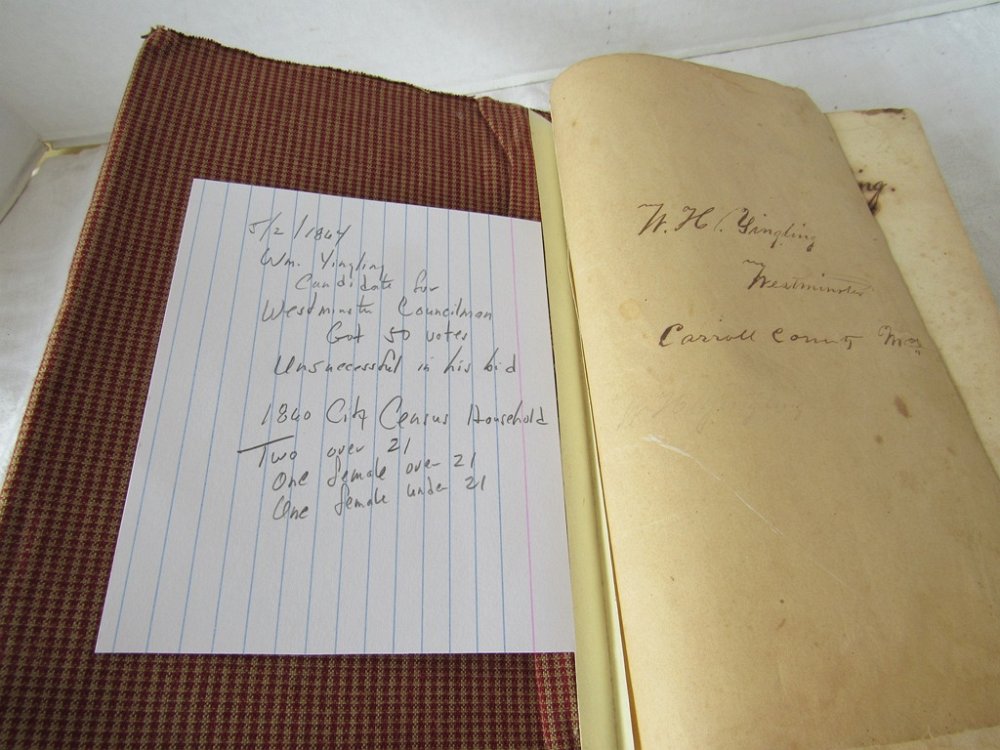 5/2/1844
Wm. Yingling
Candidate for
Westminster Councilman
Got 50 votes
Unsuccessful in his bid
1840 City Census Household
Two over 21
One female over 21
One female under 21
ng.
W. H. Yingling
Westminster
Carroll County Md